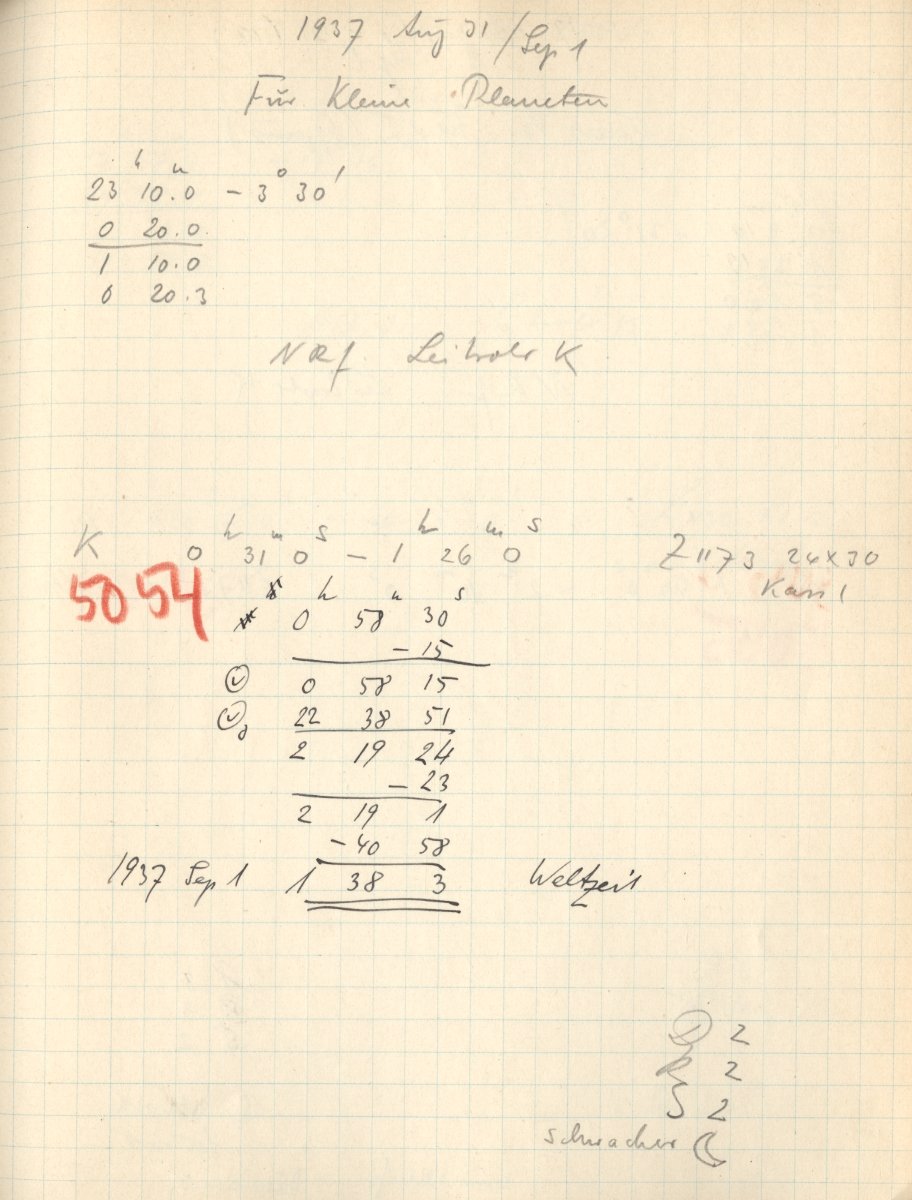 1937 Aug 31/Sep 1
Für Kleine Planeten
23ʰ 10.0ᵐ – 3° 30'
0 20.0
1 10.0
0 20.3
Leitrohr K
K 0ʰ 31ᵐ 0ˢ – 1ʰ 26ᵐ 0ˢ Z 1173 24x30
5054 Kass 1
0ʰ 58ᵐ 30ˢ
– 15
0 58 15
22 38 51
2 19 24
– 23
2 19 1
– 40 58
1937 Sep 1 1 38 3 Weltzeit
2
2
S 2
schwacher ☾